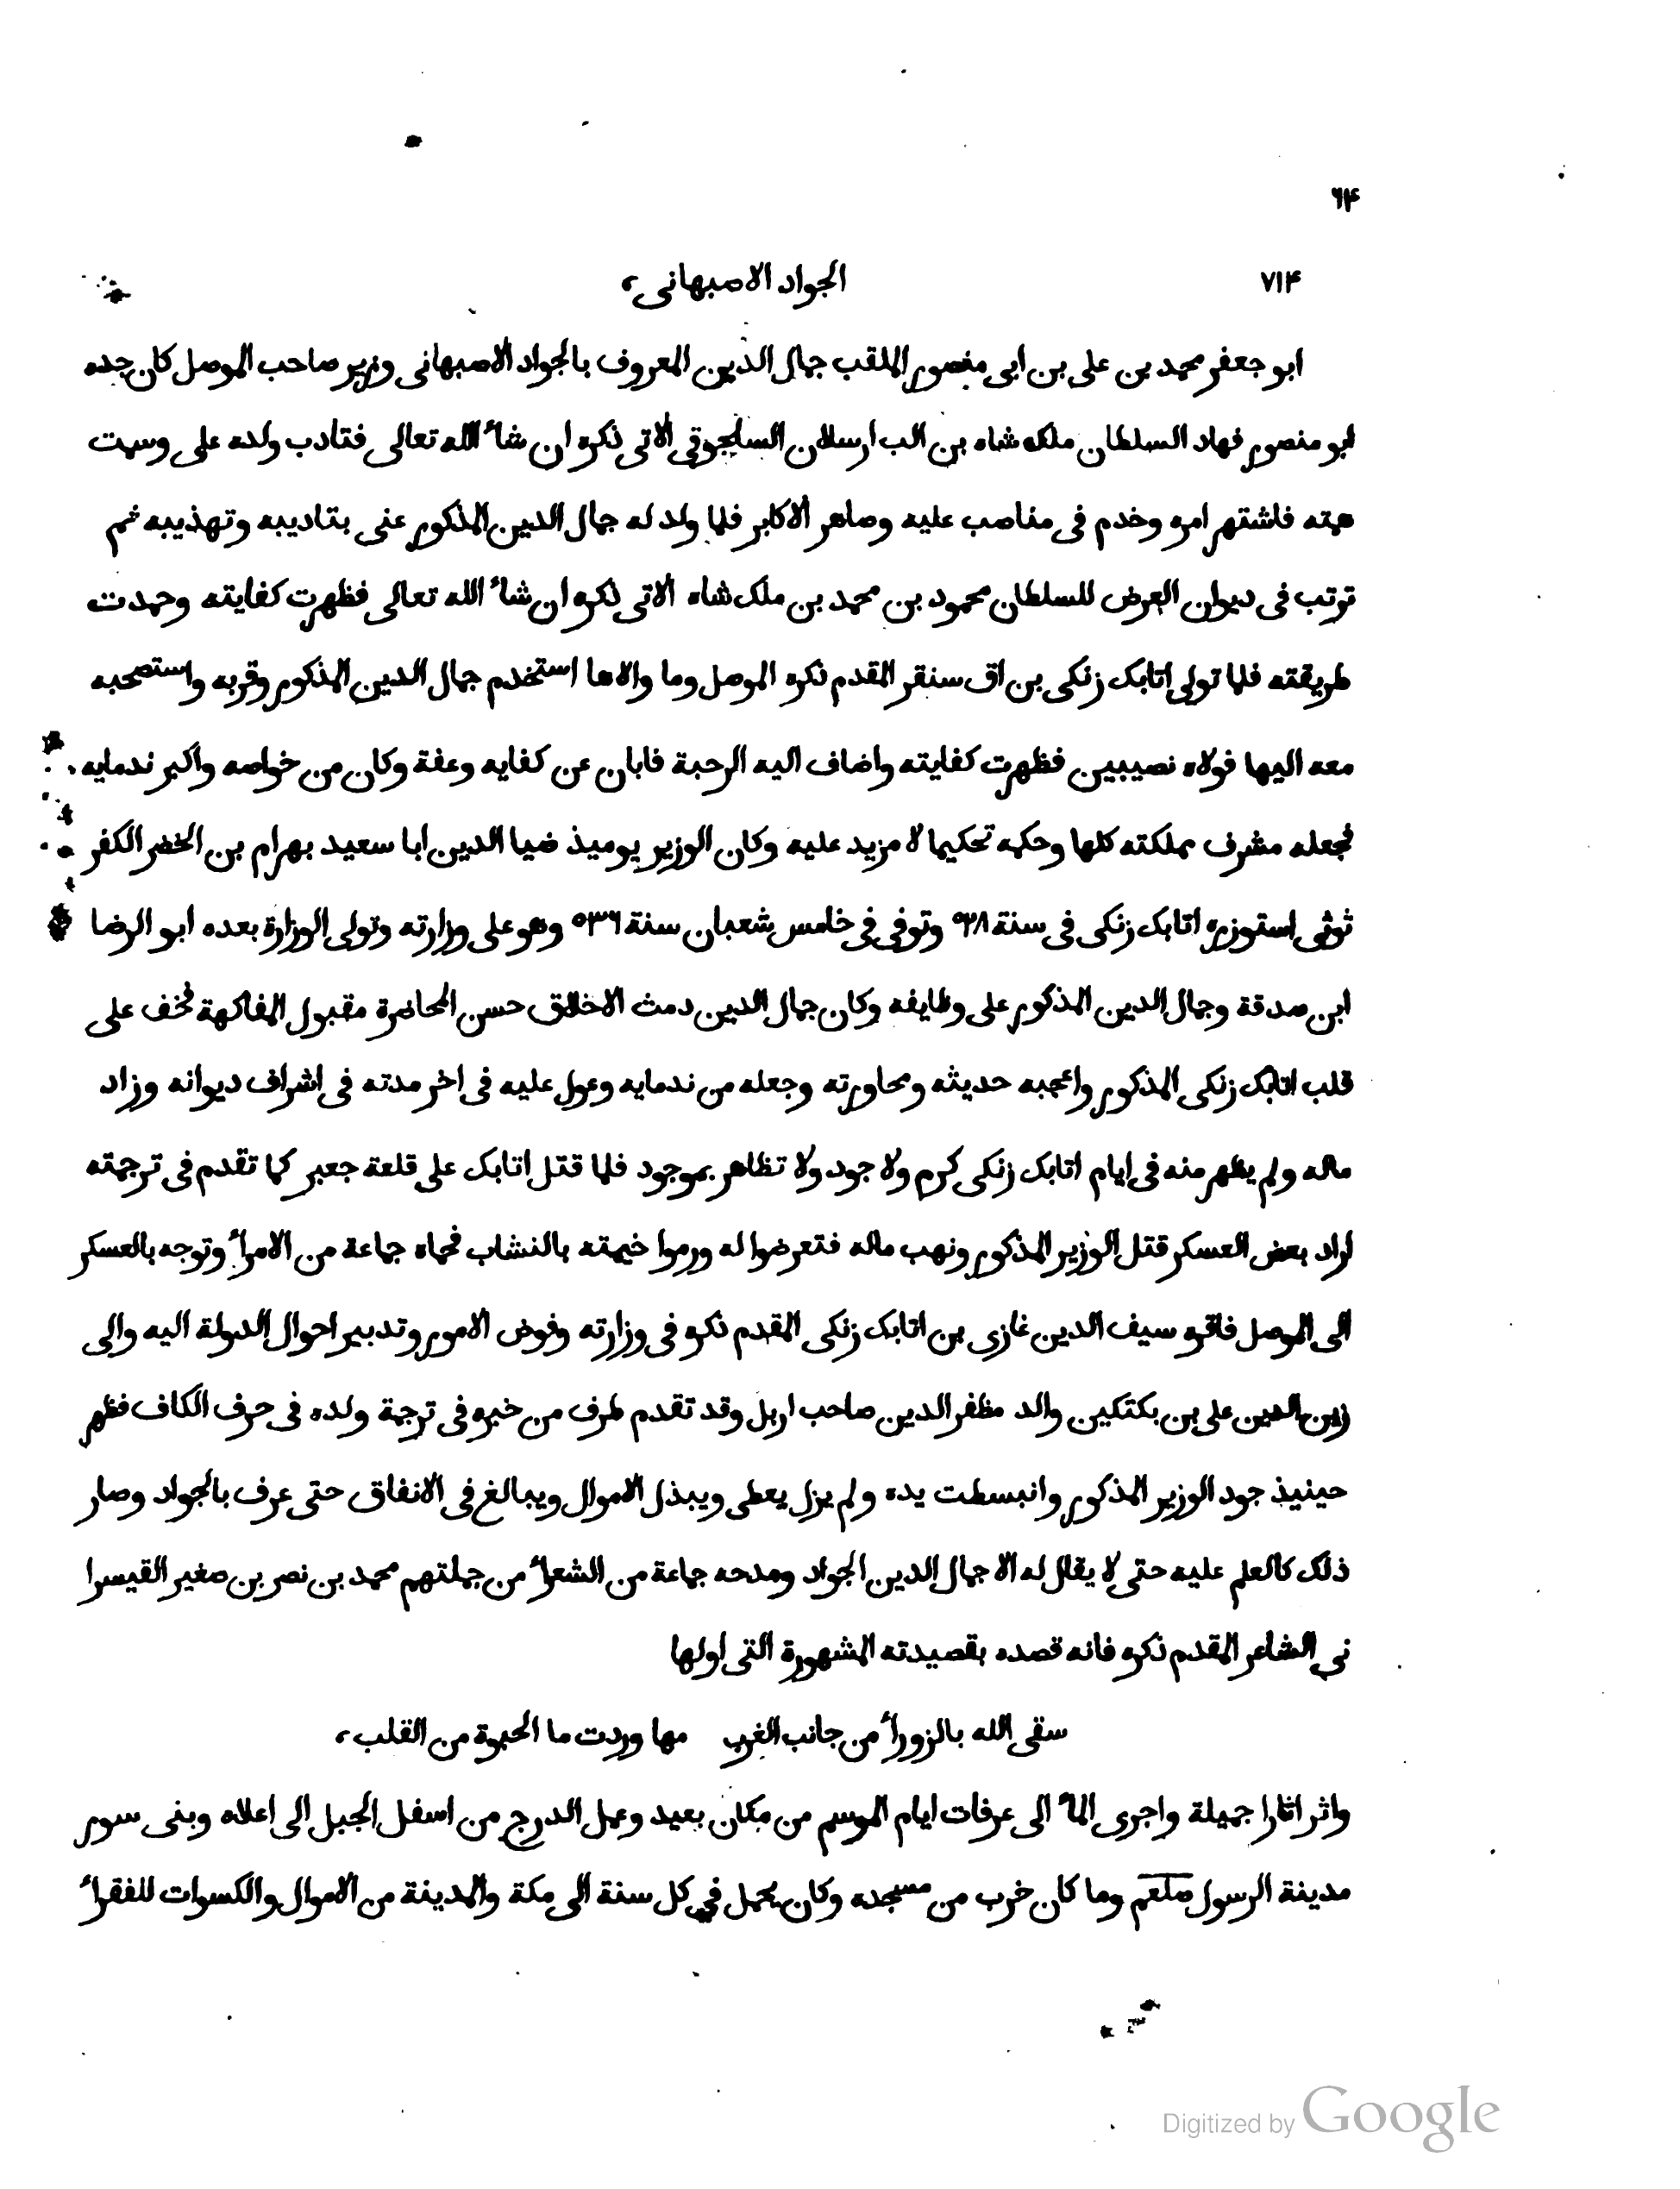 ٦۴
٧١۴
الجواد الاصبهانى،
ابو جعفر محمد بن على بن ابى منصور الملقب جمال الدين المعروف بالجواد الاصبهانى وزير صاحب الموصل كان جده
ابو منصور فهاد السلطان ملكه شاه بن الب ارسلان السلجوقى الاتى ذكره ان شاء الله تعالى فتادب ولده على وسمت
همته فاشتهر امره وخدم فى مناصب عليه وصاهر الاكابر فلما ولد له جمال الدين المذكور عنى بتاديبه وتهذيبه ثم
ترتب فى ديوان العرض للسلطان محمود بن محمد بن ملك شاه الاتى ذكره ان شاء الله تعالى فظهرت كفايته وحمدت
طريقته فلما تولى اتابك زنكى بن اق سنقر المقدم ذكره الموصل وما والاها استخدم جمال الدين المذكور وقربه واستصحبه
معه اليها فولاه نصيبين فظهرت كفايته واضاف اليه الرحبة فابان عن كفايه وعفة وكان من خواصه واكبر ندمايه
فجعله مشرف مملكته كلها وحكمه تحكيما لا مزيد عليه وكان الوزير يوميذ ضيا الدين ابا سعيد بهرام بن الخضر الكفر
ثوثى استوزره اتابك زنكى فى سنة ٥٢٨ وتوفى فى خامس شعبان سنة ٥٣٦ وهو على وزارته وتولى الوزارة بعده ابو الرضا
ابن صدقة وجمال الدين المذكور على وظايفه وكان جمال الدين دمث الاخلاق حسن المحاضرة مقبول المفاكهة فخف على
قلب اتابك زنكى المذكور واعجبه حديثه ومحاورته وجعله من ندمايه وعول عليه فى اخر مدته فى اشراف ديوانه وزاد
ماله ولم يظهر منه فى ايام اتابك زنكى كرم ولا جود ولا تظاهر بموجود فلما قتل اتابك على قلعة جعبر كما تقدم فى ترجمته
اراد بعض العسكر قتل الوزير المذكور ونهب ماله فتعرضوا له ورموا خيمته بالنشاب فحماه جماعة من الامراء وتوجه بالعسكر
الى الموصل فاقره سيف الدين غازى بن اتابك زنكى المقدم ذكره فى وزارته وفوض الامور وتدبير احوال الدولة اليه والى
زين الدين على بن بكتكين والد مظفر الدين صاحب اربل وقد تقدم طرف من خبره فى ترجمة ولده فى حرف الكاف فظهر
حينيذ جود الوزير المذكور وانبسطت يده ولم يزل يعطى ويبذل الاموال ويبالغ فى الانفاق حتى عرف بالجواد وصار
ذلك كالعلم عليه حتى لا يقال له الا جمال الدين الجواد ومدحه جماعة من الشعراء من جملتهم محمد بن نصر بن صغير القيسرا
نى الشاعر المقدم ذكره فانه قصده بقصيدته المشهورة التى اولها
سقى الله بالزوراء من جانب الغرب مها وردت ما الحيوة من القلب،
واثر اثارا جميلة واجرى الماء الى عرفات ايام الموسم من مكان بعيد وعمل الدرج من اسفل الجبل الى اعلاه وبنى سور
مدينة الرسول صلعم وما كان خرب من مسجده وكان يحمل فى كل سنة الى مكة والمدينة من الاموال والكسوات للفقراء
Digitized by Google